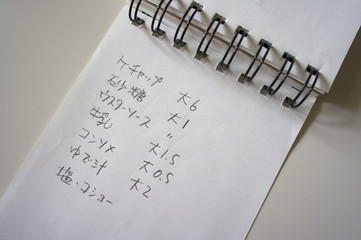 ケチャップ 大6
砂糖 大1
ウスターソース 〃
牛乳 大1.5
コンソメ 大0.5
ゆで汁 大2
塩・コショー